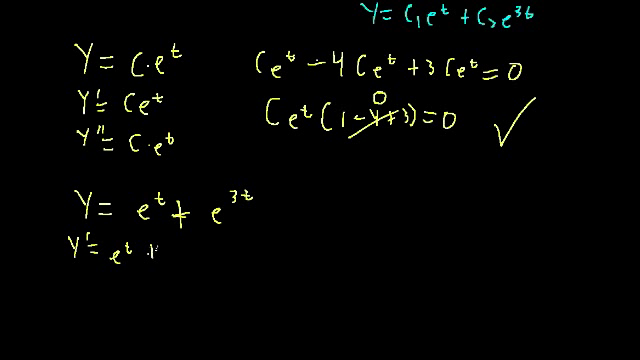 Y = C₁e^t + C₂e^3t
Y = C·e^t
Y' = Ce^t
Y'' = C·e^t
Ce^t - 4Ce^t + 3Ce^t = 0
0
Ce^t(1 - 4 + 3) = 0 ✓
Y = e^t + e^3t
Y' = e^t +